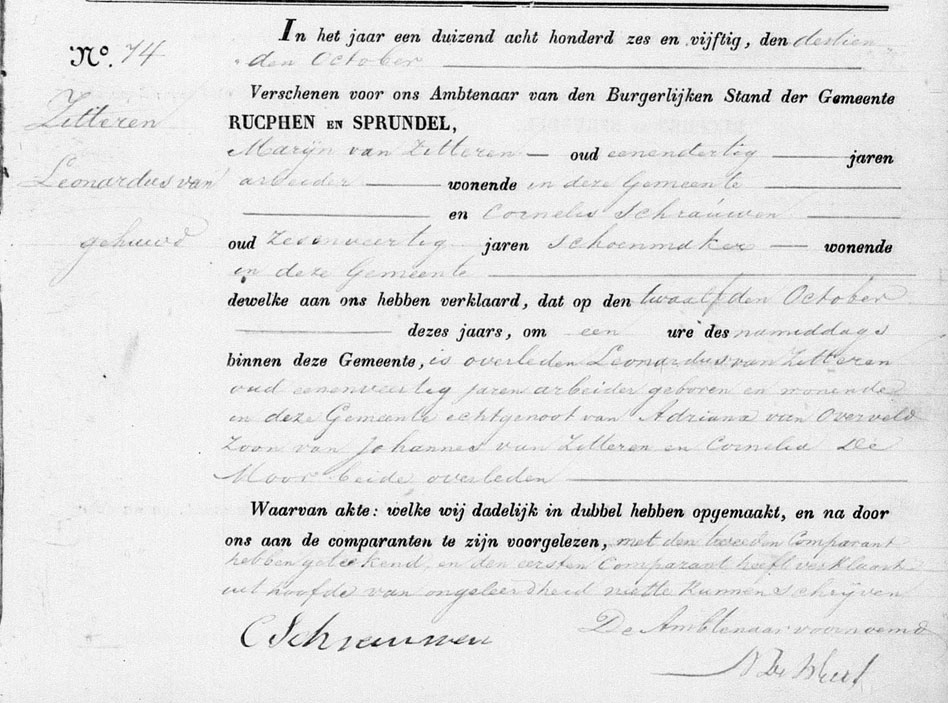 No. 74
Zitteren
Leonardus van
gehuwd
In het jaar een duizend acht honderd zes en vijftig, den dertien
den October
Verschenen voor ons Ambtenaar van den Burgerlijken Stand der Gemeente
RUCPHEN EN SPRUNDEL,
Marijn van Zitteren — oud eenendertig — jaren
arbeider — wonende in deze Gemeente
en Cornelis Schrauwen
oud Zesenveertig jaren Schoenmaker — wonende
in deze Gemeente
dewelke aan ons hebben verklaard, dat op den twaalfden October
dezes jaars, om een ure des namiddags
binnen deze Gemeente, is overleden Leonardus van Zitteren
oud eenenveertig jaren arbeider geboren en wonende
in deze Gemeente echtgenoot van Adriana van Overveld
Zoon van Johannes van Zitteren en Cornelia De
Moor beide overleden
Waarvan akte: welke wij dadelijk in dubbel hebben opgemaakt, en na door
ons aan de comparanten te zijn voorgelezen, met den tweeden Comparant
hebben geteekend, en den eersten Comparant heeft verklaard
uit hoofde van ongeleerdheid niet te kunnen schrijven
C Schrauwen
De Ambtenaar voornoemd